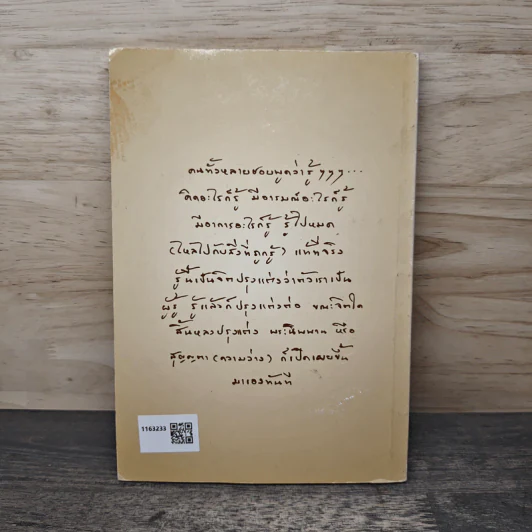 คนทั้วหลายชอบพูดว่ารู้ ๆๆๆ...
คิดอะไรก็รู้ มีอารมณ์อะไรก็รู้
มีอาการอะไรก็รู้ รู้ไปหมด
(ไหลไปกับสิ่งที่ถูกรู้) แท้ที่จริง
รู้นี้เป็นจิตปรุงแต่งว่าตัวเราเป็น
ผู้รู้ รู้แล้วก็ปรุงแต่งต่อ ขณะจิตใด
สิ้นหลงปรุงแต่ง พระนิพพาน หรือ
สุญญตา (ความว่าง) ก็เปิดเผยขึ้น
มาเองทันที
1163233